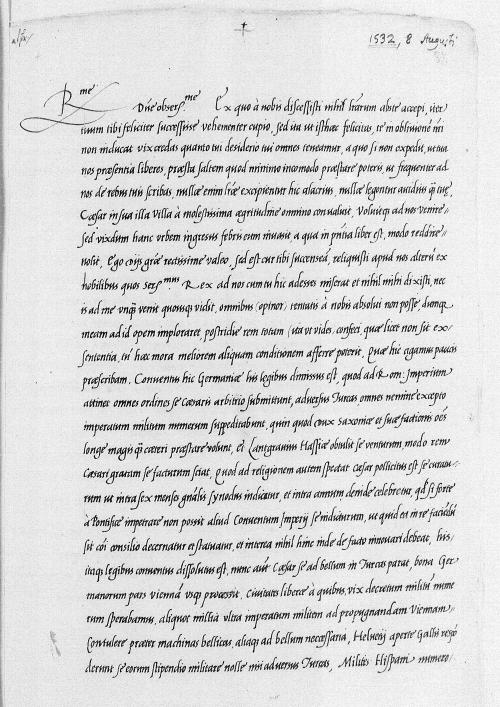 1532, 8 Augusti
R.me D.ne obser.me Ex quo à nobis discessisti nihil l̃rarum abs te accepi, iter
tuum tibi feliciter successisse vehementer cupio, sed ita ut isthaec felicitas, te in obliuionẽ mi
non inducat vix credas quanto tui desiderio tui omnes teneamur, a quo si non expedit, ut tua
nos praesentia liberes, praesta saltem quod minimo incomodo praestare poteris, ut frequenter ad
nos de rebus tuis scribas, nullae enim l̃rae excipientur hic alacrius, nullae legentur auidius q̃ tuae,
Caesar in sua illa Villa à molestissima aegritudine omnino conualuit, Voluitq ad nos venire
sed vixdum hanc urbem ingressus febris eum inuasit, a qua in pñtia liber est, modo reddire
nolit, Ego eius gr̃ae rectissime valeo, sed est cur tibi succenseã, reliquisti apud nos alteru ex
hobilibus quos ser.mus Rex ad nos cum tu hic adesses miserat et nihil mihi dixisti, nec
is ad me unq̃ venit quousq vidit, omnibus (opinor) tentatis à nobis absolui non posse, dumq
meam ad id opem imploraret, postridie rem totam (uta vt vides) confeci, quae licet non sit ex
sententia, tñ haec mora meliorem aliquam conditionem afferre poterit, Quae hic agamus paucis
praescribam. Conuentus hic Germaniae his legibus dimissus est, quod ad Rom: Imperium
attinet omnes ordines se Caesaris arbitrio submittunt, aduersus Turcas omnes nemine excepto
imperatum militum numerum suppeditabunt, quin quod Dux saxoniae et suae factionis oẽs
longe magis q̃ caeteri praestare volunt, et Lantgrauius Hassiae obtulit se venturum modo rem
Caesari gratam se facturum sciat, Quod ad religionem autem spectat Caesar pollicitus est se curatu-
rum ut intra sex menses gñalis synodus indicatur, et intra annum deinde celebretur, qđ si forte
à Pontifice impetrare non possit aliud Conuentum Imperij se indicturum, ut quid in ea re faciẽdũ
sit cõi consilio decernatur et statuatur, et interea nihil hinc inde de facto innouari debeat, his
itaq legibus conuentus dissolutus est, nunc aut Caesar se ad bellum in Turcas parat, bona Ger
manorum pars viennã usq processit, Ciuitates liberae à quibus, vix decretum militũ nume
rum sperabamus, aliquot millia vltra imperatum militem ad propugnandam Viennam
Contulere praeter machinas bellicas, aliaq ad bellum necessaria, Heluetij aperte Gallis respõ
derunt se eorum stipendio militare nolle nisi aduersus Turcas, Milites Hispani numero